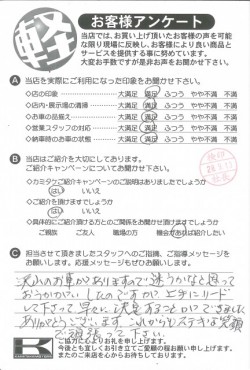 軽
お客様アンケート
当店では、お買い上げ頂いたお客様の声を可能
な限り現場に反映し、お客様により良い商品と
サービスを提供する事に努めています。
大変お手数ですが是非お声をお聞かせ下さい。
A 当店を実際にご利用になった印象をお聞かせ下さい。
◇店の印象 大満足 満足 ふつう やや不満 不満
◇店内・展示場の清掃 大満足 満足 ふつう やや不満 不満
◇お車の品揃え 大満足 満足 ふつう やや不満 不満
◇営業スタッフの対応 大満足 満足 ふつう やや不満 不満
◇納車時のお車の状態 大満足 満足 ふつう やや不満 不満
B 当店はご紹介を大切にしてあります。
ご紹介キャンペーンについてお聞かせ下さい。
◇カミタケご紹介キャンペーンのご説明はありましたでしょうか
はい いいえ
◇ご紹介を頂けますでしょうか
はい いいえ
◇具体的にご紹介頂ける方とのご関係をお聞かせ頂けますでしょうか
ご親族 ご友人 職場の方 機会があれば紹介したい
C 担当させて頂きましたスタッフへご指摘、ご指導メッセージを
お願いします。応援メッセージもぜひお願いします。
沢山のお車がありますので迷うかなと思って
下さって早々に決定することができました
ありがとうございます これからもステキな笑顔
で頑張って下さい。
ご協力に心よりお礼を申し上げます。
今後とも宜しくお引き立てご愛顧の程お願い申し上げます。
またのご来店を心からお待ちしております。
K